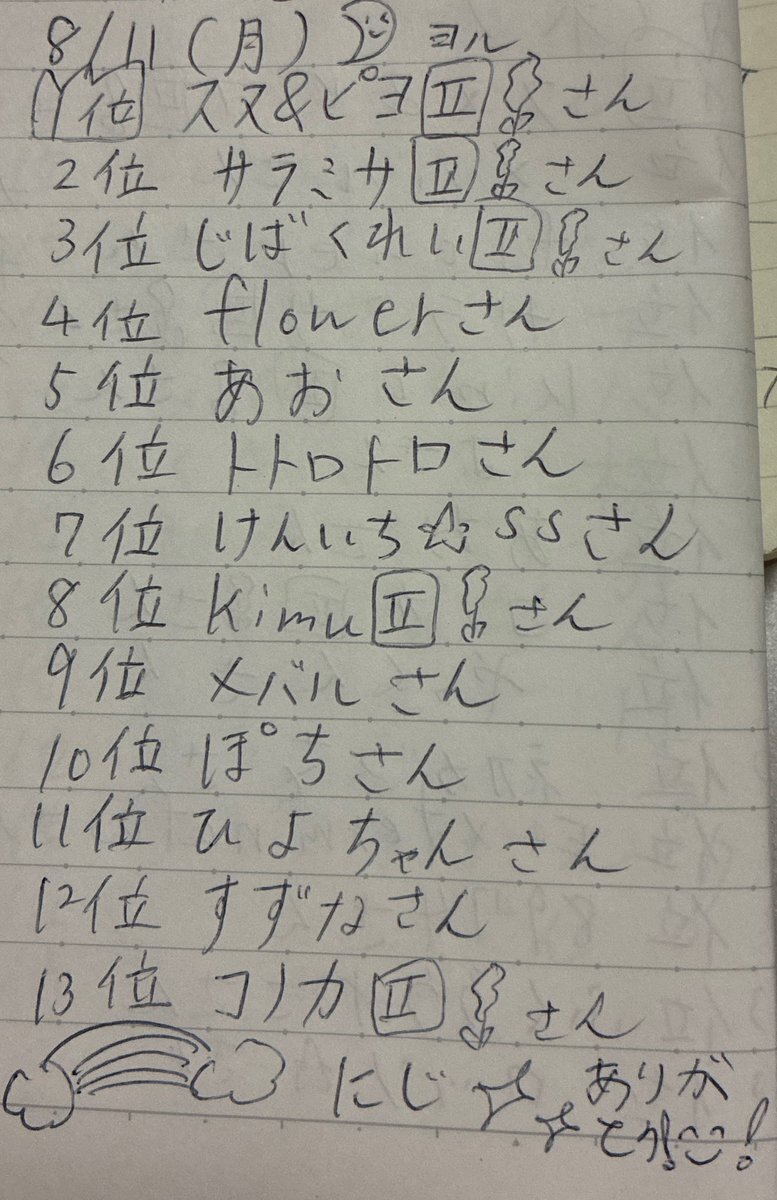 8/11(月) ヨル
1位 スヌ&ピヨ Ⅱ さん
2位 サラミサ Ⅱ さん
3位 じばくれい Ⅱ さん
4位 flowerさん
5位 あおさん
6位 トトロトロさん
7位 けんいち☆ssさん
8位 kimu Ⅱ さん
9位 メバルさん
10位 ぽちさん
11位 ひよちゃんさん
12位 すずなさん
13位 コノカ Ⅱ さん
にじ ありが
とう!!